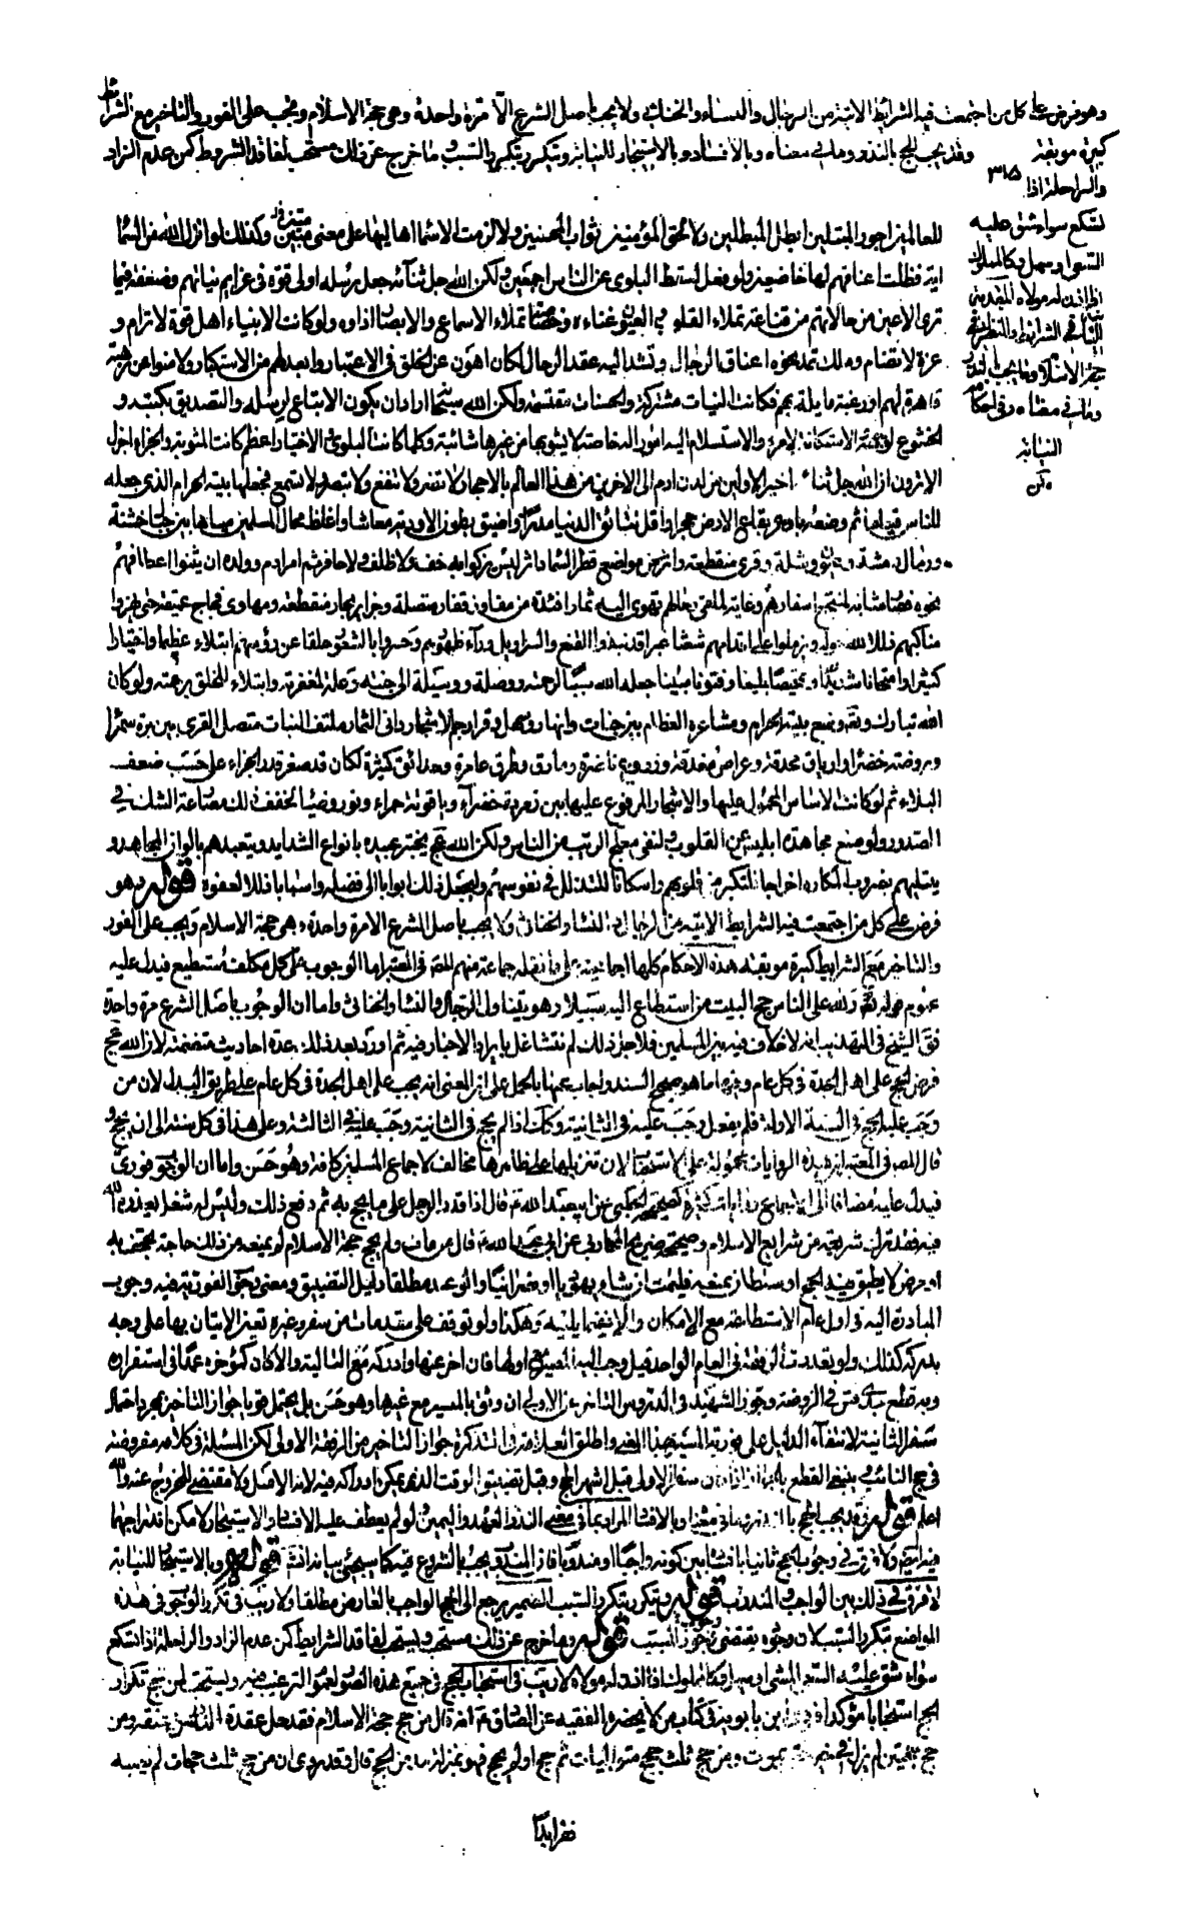 وهو فرض على كل من اجتمعت فيه الشرائط الاتية من الرجال والنساء والخناثى ولا يجب باصل الشرع الا مرة واحدة وهي حجة الاسلام ويجب على الفور والتاخير مع الشرائط
كبيرة موبقة وقد يجب الحج بالنذر وما في معناه وبالافساد وبالاستيجار للنيابة ويتكرر بتكرر السبب وما خرج عن ذلك مستحب لفاقد الشروط كمن عدم الزاد
٣١٥
والراحلة اذا
تسكع سواء شق عليه
السعي او سهل وكالمملوك
اذا اذن له مولاه
الشرائط والنظر في
حجة الاسلام وما يجب بالنذر
وما في معناه وفي احكام
النيابة
للعالمين اجور المبتلين ابطل المبطلين ولا لحق المؤمنين ثواب المحسنين ولا لزمت الاسماء اهاليها على معنى مبين وكذلك لو انزل الله من السماء
اية فظلت اعناقهم لها خاضعين ولو فعل لسقط البلوى عن الناس اجمعين ولكن الله جل ثنائه جعل رسله اولى قوة في عزايم نياتهم وضعفة فيما
ترى الاعين من حالاتهم من قناعة تملاء القلوب والعيون غناءه وخصاصة تملاء الاسماع والابصار اذاه ولو كانت الانبياء اهل قوة لا ترام و
عزة لا تضام وملك تمد نحوه اعناق الرجال وتشد اليه عقد الرحال لكان اهون على الخلق في الاعتبار وابعد لهم من الاستكبار ولامنوا عن رهبة
قاهرة لهم او رغبة مايلة بهم فكانت النيات مشتركة والحسنات مقتسمة ولكن الله سبحانه اراد ان يكون الاتباع لرسله والتصديق بكتبه و
الخشوع لوجهه والاستكانة لامره والاستسلام اليه امور له خاصة لا يشوبها من غيرها شائبة وكلما كانت البلوى والاختبار اعظم كانت المثوبة والجزاء اجزل
الا ترون ان الله جل ثناؤه اختبر الاولين من لدن ادم الى الاخرين من هذا العالم بالاحجار لا تضر ولا تنفع ولا تبصر ولا تسمع فجعلها بيته الحرام الذي جعله
للناس قياما ثم وضعه باوعر بقاع الارض حجرا واقل نتائق الدنيا مدرا واضيق بطون الاودية معاشا واغلظ محال المسلمين مياها بين جبال خشنة
ورمال دمثة وعيون وشلة وقرى منقطعة واثر من مواضع قطر السماء داثر ليس يزكوا به خف ولا ظلف ولا حافر ثم امر ادم وولده ان يثنوا اعطافهم
نحوه فصار مثابة لمنتجع اسفارهم وغاية لملقى رحالهم تهوى اليه ثمار افئدة من مفاوز قفار متصلة وجزاير بحار منقطعة ومهاوى فجاج عميقة حتى يهزوا
مناكبهم ذللا لله حوله ويرملوا على اقدامهم شعثا غبرا قد نبذوا القنع والسراويل وراء ظهورهم وحسروا بالشعور حلقا عن رؤسهم ابتلاء عظيما واختبارا
كثيرا وامتحانا شديدا وتمحيصا بليغا وفتونا مبينا جعله الله سببا لرحمته ووصلة ووسيلة الى جنته وعلة لمغفرته وابتلاء للخلق برحمته ولو كان
الله تبارك وتعالى وضع بيته الحرام ومشاعره العظام بين جنات وانهار وسهل وقرار جم الاشجار داني الثمار ملتف النبات متصل القرى بين برة سمراء
وروضة خضراء وارياف محدقة وعراص مغدقة وزروع ناضرة وطرق عامرة وحدائق كثيرة لكان قد صغر قدر الجزاء على حسب ضعف
البلاء ثم لو كانت الاساس المحمول عليها والاحجار المرفوع عليها بين زمردة خضراء وياقوتة حمراء ونور وضياء لخفف ذلك مصارعة الشك في
الصدور ولوضع مجاهدة ابليس عن القلوب ولنفى معتلج الريب من الناس ولكن الله عج يختبر عبيده بانواع الشدايد ويتعبدهم بالوان المجاهد و
يبتليهم بضروب المكاره اخراجا للتكبر من قلوبهم واسكانا للتذلل في نفوسهم وليجعل ذلك ابوابا الى فضله واسبابا ذللا لعفوه قوله وهو
فرض على كل من اجتمعت فيه الشرايط الاتية من الرجال والنساء والخناثى ولا يجب باصل الشرع الا مرة واحدة وهي حجة الاسلام ويجب على الفور
والتاخير مع الشرايط كبيرة موبقة هذه الاحكام كلها اجماعية على ما نقله جماعة منهم المصنف في المعتبر اما الوجوب على كل مكلف مستطيع فيدل عليه
عموم قوله تعالى ولله على الناس حج البيت من استطاع اليه سبيلا وهو يتناول الرجال والنساء والخناثى واما ان الوجوب باصل الشرع مرة واحدة
فقال الشيخ في التهذيب انه لا خلاف فيه بين المسلمين فلاجل ذلك لم نتشاغل بايراد الاخبار فيه ثم اورد بعد ذلك عدة احاديث متضمنة لان الله عج
فرض الحج على اهل الجدة في كل عام وفيها ما هو صحيح السند واجاب عنها بالحمل على ان المعنى انه يجب على اهل الجدة في كل عام على طريق البدل لان من
وجب عليه الحج في السنة الاولى فلم يفعل وجب عليه في الثانية وكذا اذا لم يحج في الثانية وجب عليه في الثالثة وعلى هذا في كل سنة الى ان يحج و
قال المصنف في المعتبر ان هذه الروايات محمولة على الاستحباب لان تنزيلها على ظاهرها مخالف لاجماع المسلمين كافة وهو حسن واما ان الوجوب فوري
فيدل عليه مضافا الى الاجماع روايات كثيرة كصحيحة الحلبي عن ابي عبد الله ع قال اذا قدر الرجل على ما يحج به ثم دفع ذلك وليس له شغل يعذره الله
فيه فقد ترك شريعة من شرايع الاسلام وصحيحة ذريح المحاربي عن ابي عبد الله ع قال من مات ولم يحج حجة الاسلام لم يمنعه من ذلك حاجة تجحف به
او مرض لا يطيق فيه الحج او سلطان يمنعه فليمت ان شاء يهوديا او نصرانيا والوعيد مطلقا دليل التضييق ومعنى الفورية فيه وجوب
المبادرة اليه في اول عام الاستطاعة مع الامكان والا ففيما يليه وهكذا ولو توقف على مقدمات من سفر وغيره تعين الاتيان بها على وجه
يدركه كذلك ولو تعددت الرفقة في العام الواحد قيل وجب المسير مع اولها فان اخر عنها وادركه مع التالية والا كان كمؤخره عمدا في استقراره
وبه قطع جدي قدس سره في الروضة وجوز الشهيد في الدروس التاخر عن الاولى ان وثق بالمسير مع غيرها وهو حسن بل يحتمل قويا جواز التاخير بمجرد احتمال
سفر الثانية لانتفاء الدليل على فورية المسير بهذا المعنى واطلق العلامة في التذكرة جواز التاخير من الرفقة الاولى لكن المسئلة في كلامه مفروضة
في حج النائب وينبغي القطع بالجواز اذا كان سفر الاولى قبل اشهر الحج وقبل تضييق الوقت الذي يمكن ادراكه فيه لانه الاصل ولا مقتضى للخروج عنه والله
اعلم قوله وقد يجب الحج بالنذر وما في معناه وبالافساد المراد بما في معنى النذر العهد واليمين لو لم يعطف عليه الافساد والاستيجار لامكن اندراجهما
فيه ايضا ولا فرق في وجوب الحج ثانيا بافساد بين كونه واجبا او مندوبا فان المندوب يجب بالشروع فيه كما سيجيء بيانه انش قوله وبالاستيجار للنيابة
لا فرق في ذلك بين الواجب والمندوب قوله ويتكرر بتكرر السبب الضمير يرجع الى الحج الواجب بالعارض مطلقا ولا ريب في تكرر الوجوب في هذه
المواضع بتكرر السبب لان وجوده يقتضي وجود المسبب قوله وما خرج عن ذلك مستحب ويستحب لفاقد الشرايط كمن عدم الزاد والراحلة اذا تسكع
سواء شق عليه السعي او سهل وكالمملوك اذا اذن له مولاه لا ريب في استحباب الحج في جميع هذه الصور لعموم الترغيب فيه ويستحب لمن حج تكرار
الحج استحبابا مؤكدا فروى ابن بابويه في كتاب من لا يحضره الفقيه عن الصادق ع انه قال من حج حجة الاسلام فقد حل عقدة من النار من عنقه ومن
حج حجتين لم يزل في خير حتى يموت ومن حج ثلث حجج متواليات ثم حج او لم يحج فهو بمنزلة مدمن الحج قال وقد روى ان من حج ثلث حجات لم يصبه
فقر ابدا